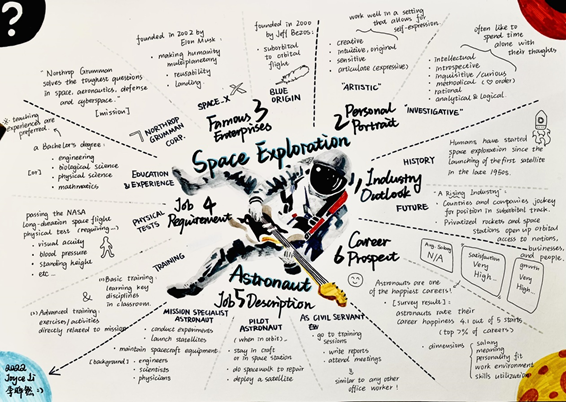 ?
founded in 2002 by
Elon Musk:
• making humanity
multiplanetary
• reusability
• landing
founded in 2000
by Jeff Bezos:
• suborbital
to orbital
flight
work well in a setting
that allows for
self-expression
• creative
• intuitive, original
• sensitive
• articulate (expressive)
"ARTISTIC"
often like to
spend time
alone with
their thoughts
• Intellectual
• introspective
• inquisitive/curious
• methodical
• rational
• analytical & logical
"INVESTIGATIVE"
"Northrop Grumman
solves the toughest questions
in space, aeronautics, defense
and cyberspace."
[mission]
SPACE-X
BLUE
ORIGIN
NORTHROP
GRUMMAN
CORP.
3
Famous
Enterprises
2 Personal
Portrait
Space Exploration
* teaching
experiences are
preferred.
a Bachelor's degree:
[or]
• engineering
• biological science
• physical science
• mathematics
EDUCATION
& EXPERIENCE
HISTORY
Humans have started
space exploration since the
launching of the first satellite
in the late 1950s.
1 Industry
Outlook
FUTURE
"A Rising Industry":
• Countries and companies jockey
for position in suborbital track.
• Privatized rockets and space
stations open up orbital
access to nations,
businesses,
and people.
Job 4
Requirement
PHYSICAL
TESTS
passing the NASA
long-duration space flight
physical test (requiring...)
• visual acuity
• blood pressure
• standing height
• etc...
TRAINING
(1) Basic training:
learning key
disciplines
in classroom.
&
(2) Advanced training:
exercises/activities
directly related to mission
Career
6 Prospect
Avg. Salary
N/A
Satisfaction
Very
High
growth
Very
High
Astronauts are one of
the happiest careers!
• [survey result]:
astronauts rate their
career happiness 4.1 out of 5 stars
(top 7% of careers)
• dimensions
salary
meaning
personality fit
work environment
skills utilization
Astronaut
Job 5 Description
MISSION SPECIALIST
ASTRONAUT
• conduct experiments
• launch satellites
• maintain spacecraft equipment
(background): • engineers
• scientists
• physicians
PILOT
ASTRONAUT
(when in orbit)
• stay in craft
or in space station
• do spacewalk to repair
• deploy a satellite
AS CIVIL SERVANT
• go to training
sessions
• write reports
• attend meetings
similar to any other
office worker!
2022
Joyce Li